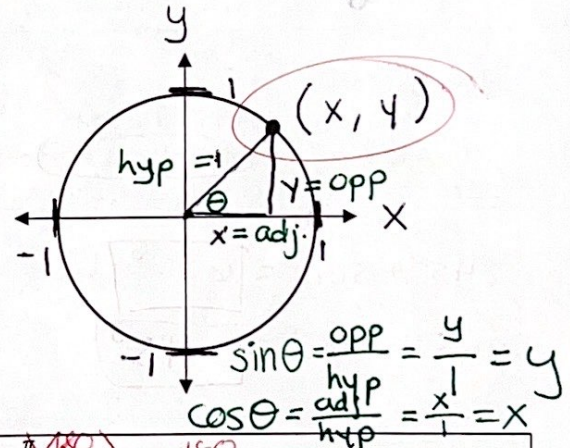 y
1
(x, y)
hyp = 1
θ
y = opp
x = adj.
x
-1
1
-1
sinθ = opp/hyp = y/1 = y
cosθ = adj/hyp = x/1 = x